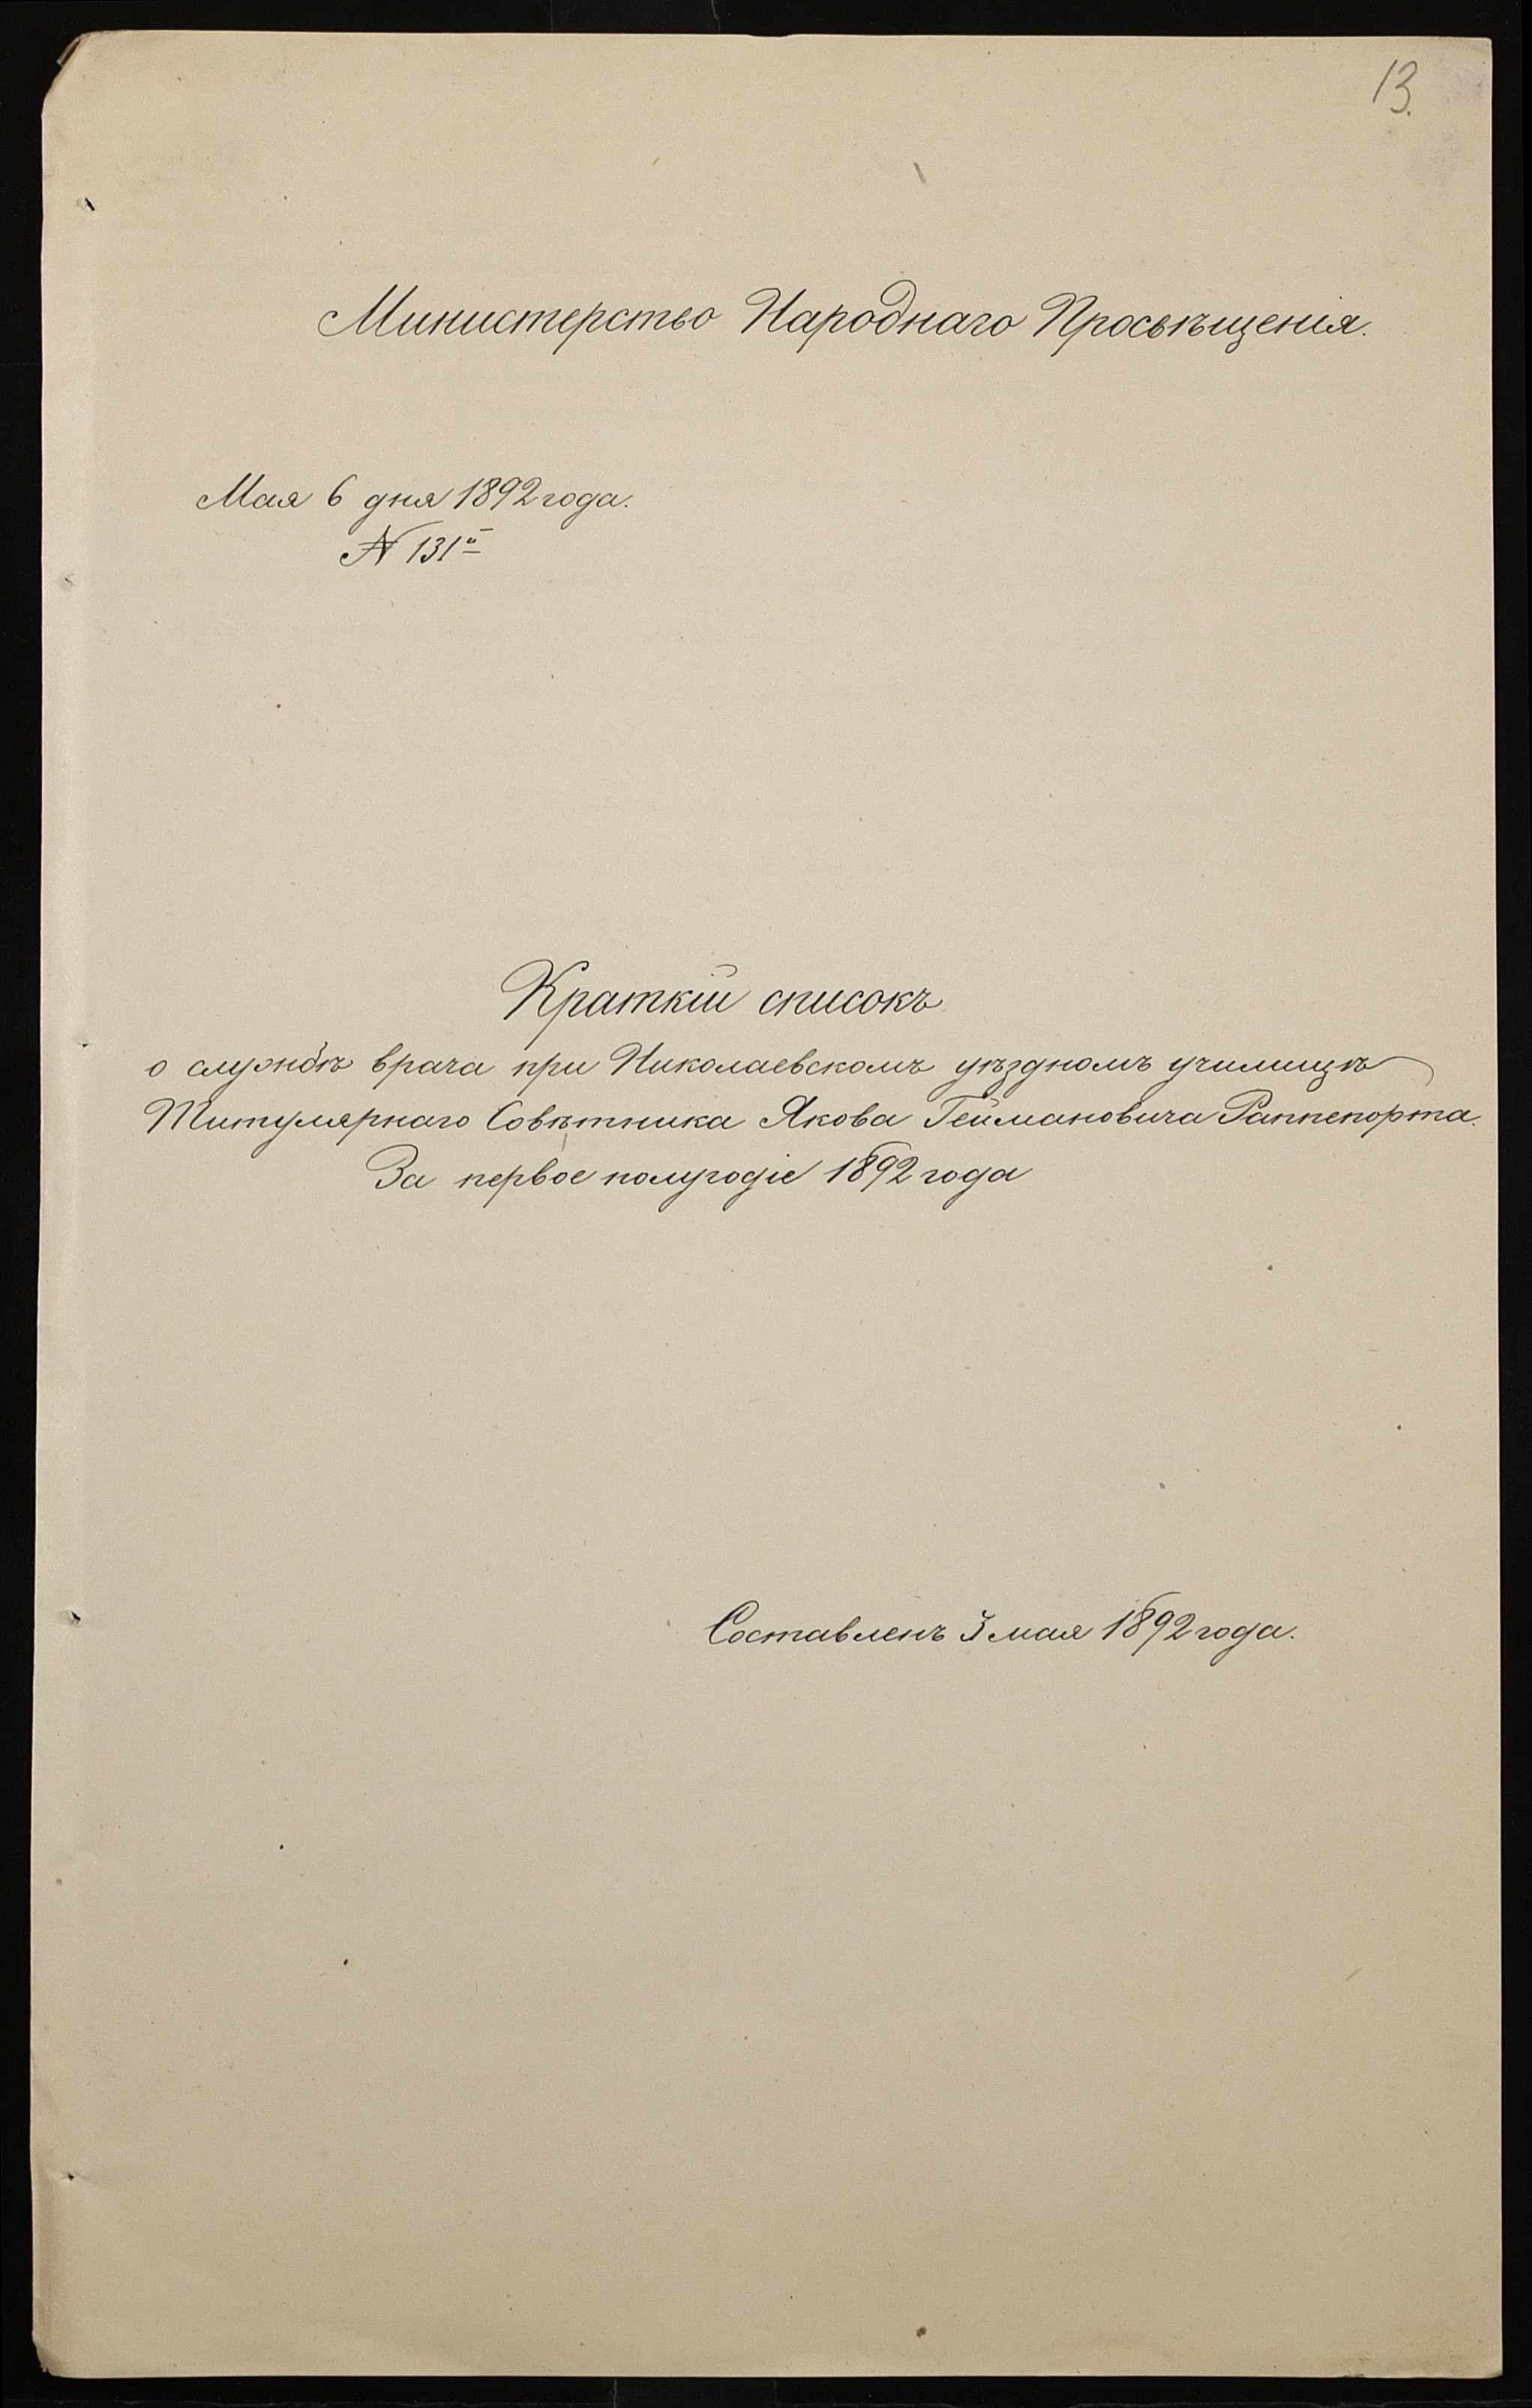 13.
Министерство Народнаго Просвѣщенія.
Мая 6 дня 1892 года.
№ 131й
Краткій списокъ
о службѣ врача при Николаевскомъ уѣздномъ училищѣ
Титулярнаго Совѣтника Якова Геймановича Раппепорта.
За первое полугодіе 1892 года
Составленъ 3 мая 1892 года.